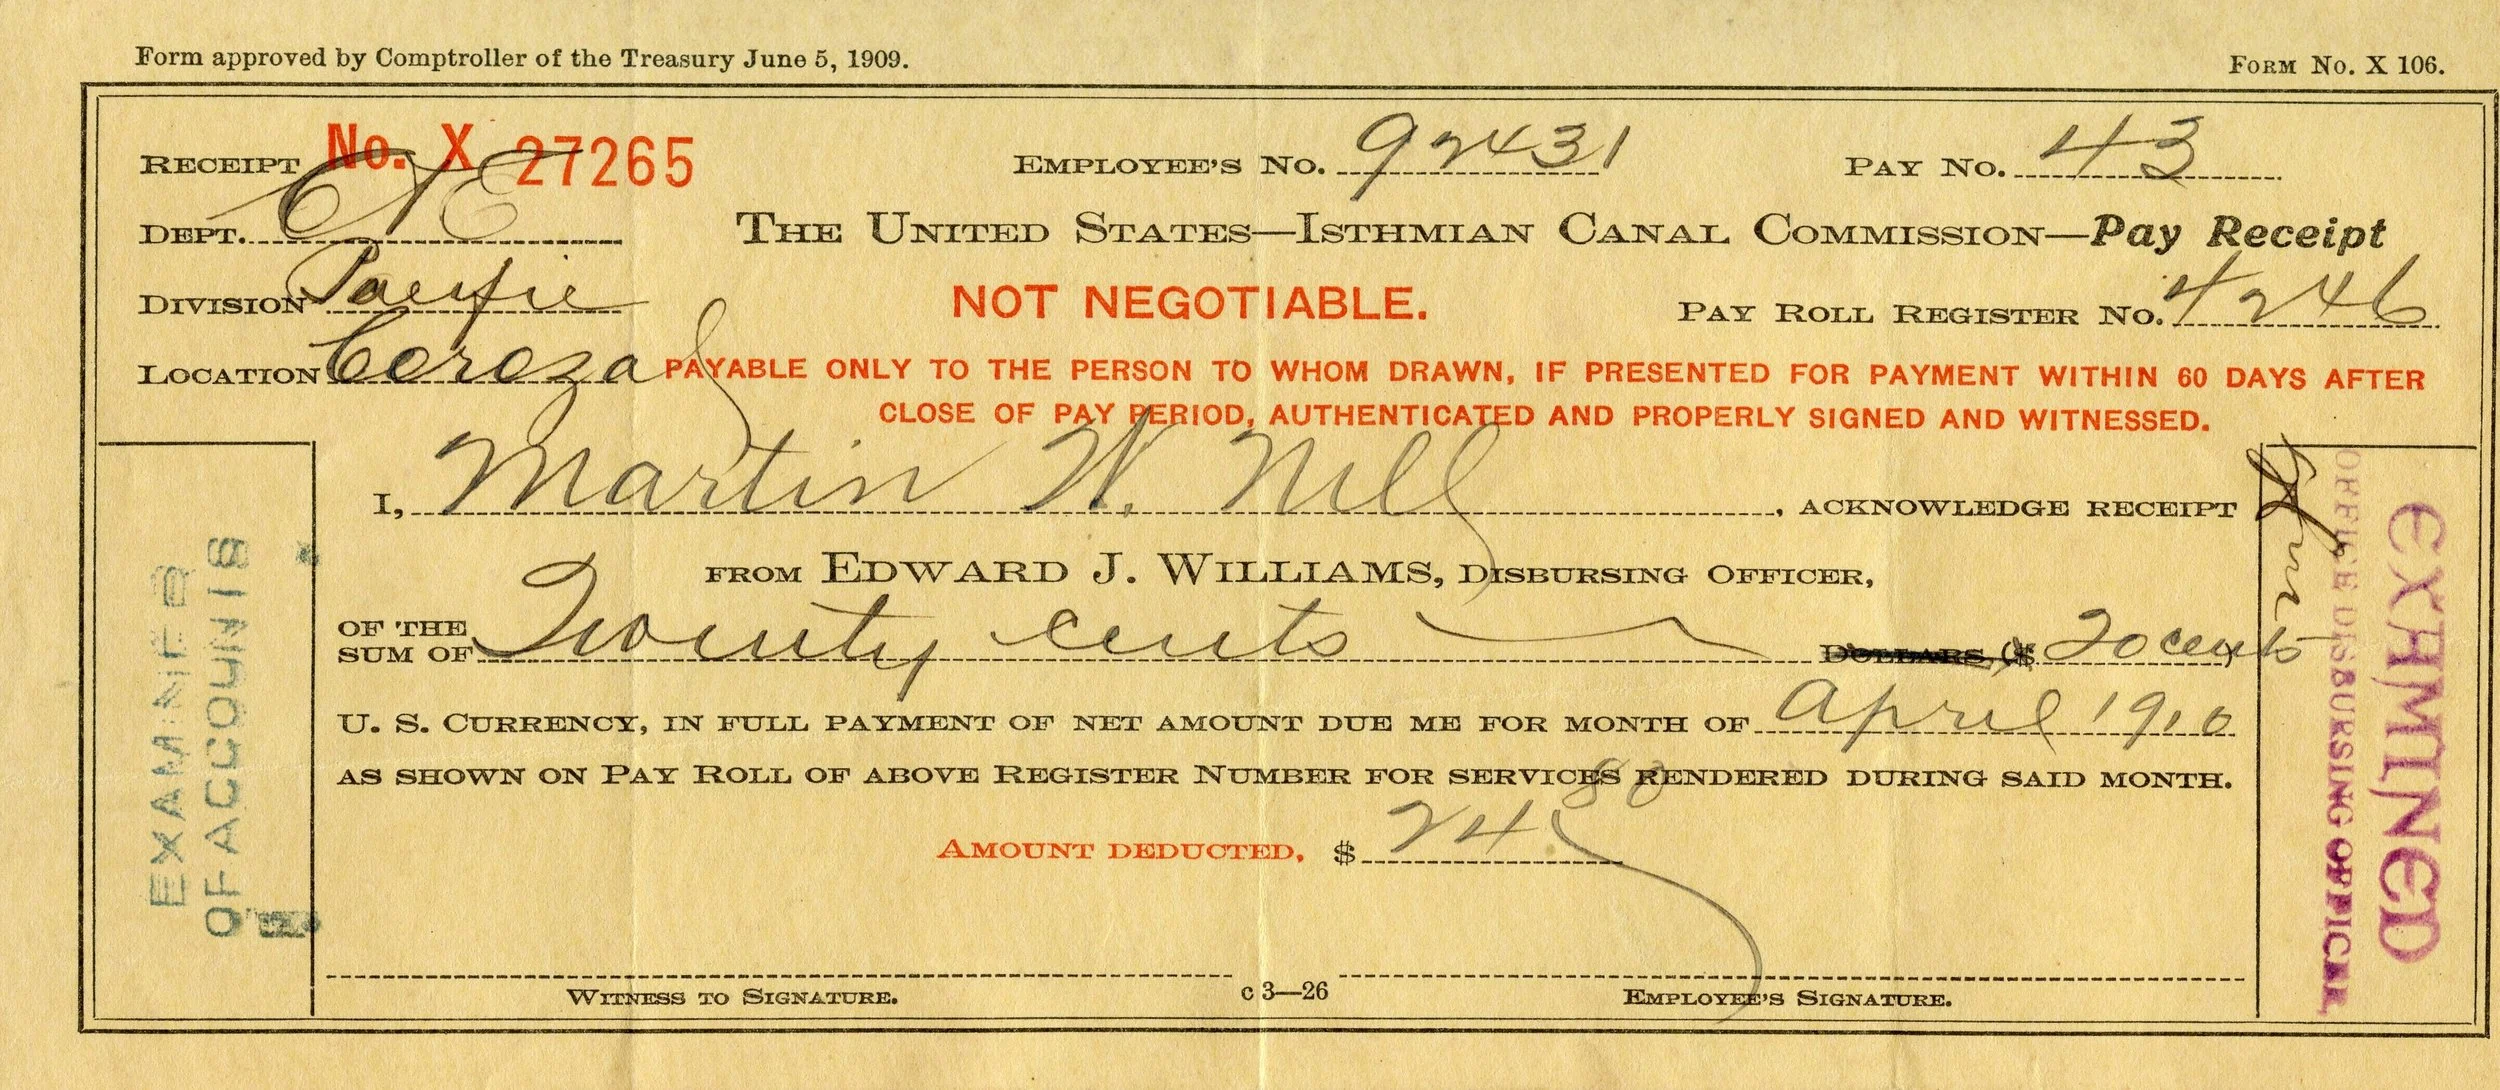 Form approved by Comptroller of the Treasury June 5, 1909.
Form No. X 106.
Receipt No. X 27265
Employee's No. 92431
Pay No. 43
Dept. C & E
The United States—Isthmian Canal Commission—Pay Receipt
Division Pacific
NOT NEGOTIABLE.
Pay Roll Register No. 4246
Location Corozal
PAYABLE ONLY TO THE PERSON TO WHOM DRAWN, IF PRESENTED FOR PAYMENT WITHIN 60 DAYS AFTER
CLOSE OF PAY PERIOD, AUTHENTICATED AND PROPERLY SIGNED AND WITNESSED.
I, Martin W. Nill, acknowledge receipt
from Edward J. Williams, Disbursing Officer,
of the sum of Twenty cents Dollars, ($ 20 cents)
U. S. Currency, in full payment of net amount due me for month of April 1910
as shown on Pay Roll of above Register Number for services rendered during said month.
Amount deducted, $ 24 80
Witness to Signature.
c 3—26
Employee's Signature.
EXAMINER
OF ACCOUNTS
EXAMINED
OFFICE DISBURSING OFFICER